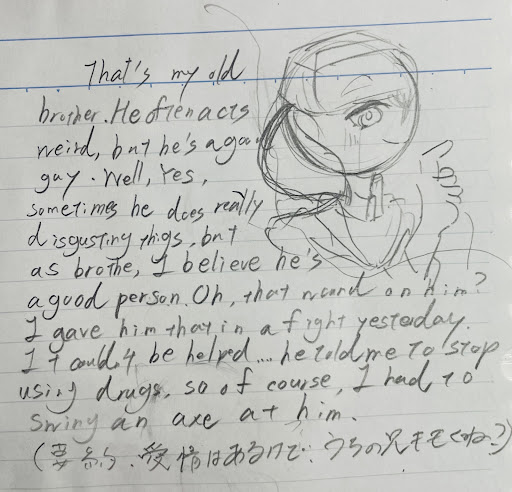 That's my old
brother. He often acts
weird, but he's a goo
guy. Well, Yes,
sometimes he does really
disgusting thigs, but
as brothe, I believe he's
a good person. Oh, that wound on him?
I gave him that in a fight yesterday.
It could4 be helped.... he told me to stop
using drugs, so of course, I had to
swing an axe at him.
(要約、発情はあるけど、うちの兄キモくね?)